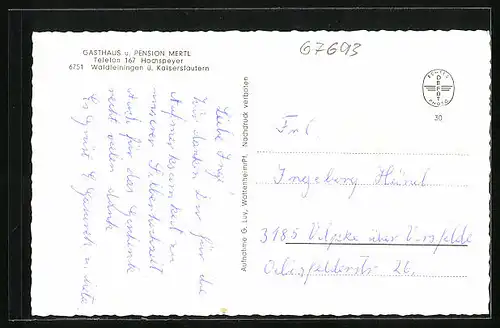 GASTHAUS u. PENSION MERTL
Telefon 167 Hochspeyer
6751 Waldleiningen ü. Kaiserslautern
67693
ECHTES
DEPOT
PHOTO
30
Liebe Inge
Wir danken Dir für die
Aufmerksamkeit zu
unserer Silberhochzeit
Auch für das Geschenk
recht vielen Dank
Es grüßt
Aufnahme G. Luy, Wattenheim/Pf. Nachdruck verboten
Frl.
Ingeborg
3185 über
26.